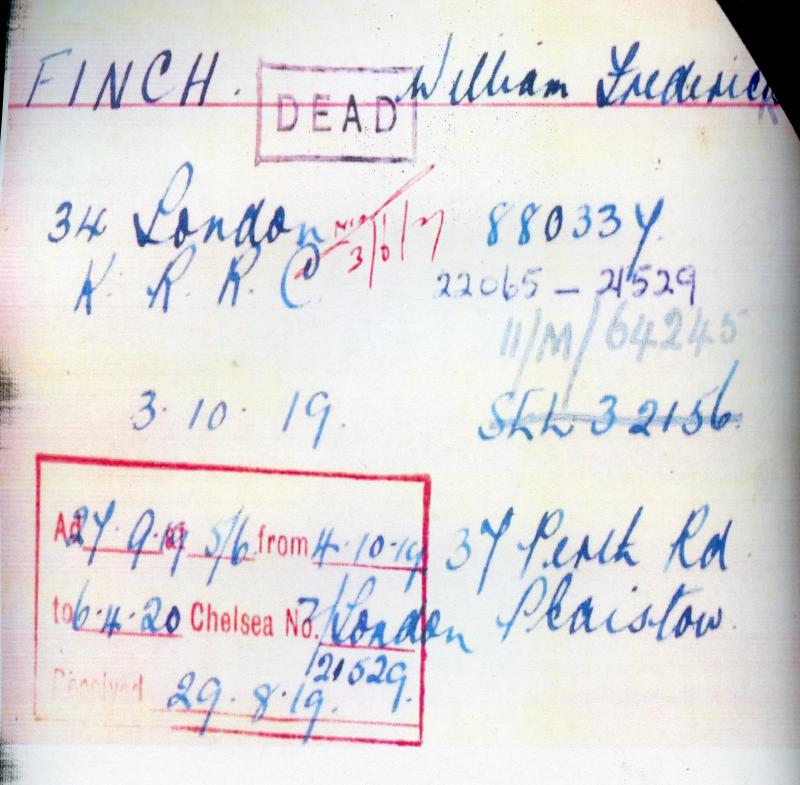 FINCH. DEAD William Frederick
34 London 880337
K. R. R. C 22065 - 21529
3/6/17
11/M/64245
3. 10. 19. SLL 32156
Ad 27.9.19 at 5/6 from 4.10.19 37 Perth Rd
to 6.4.20 Chelsea No. 7/London Plaistow
21529
Received 29.8.19.